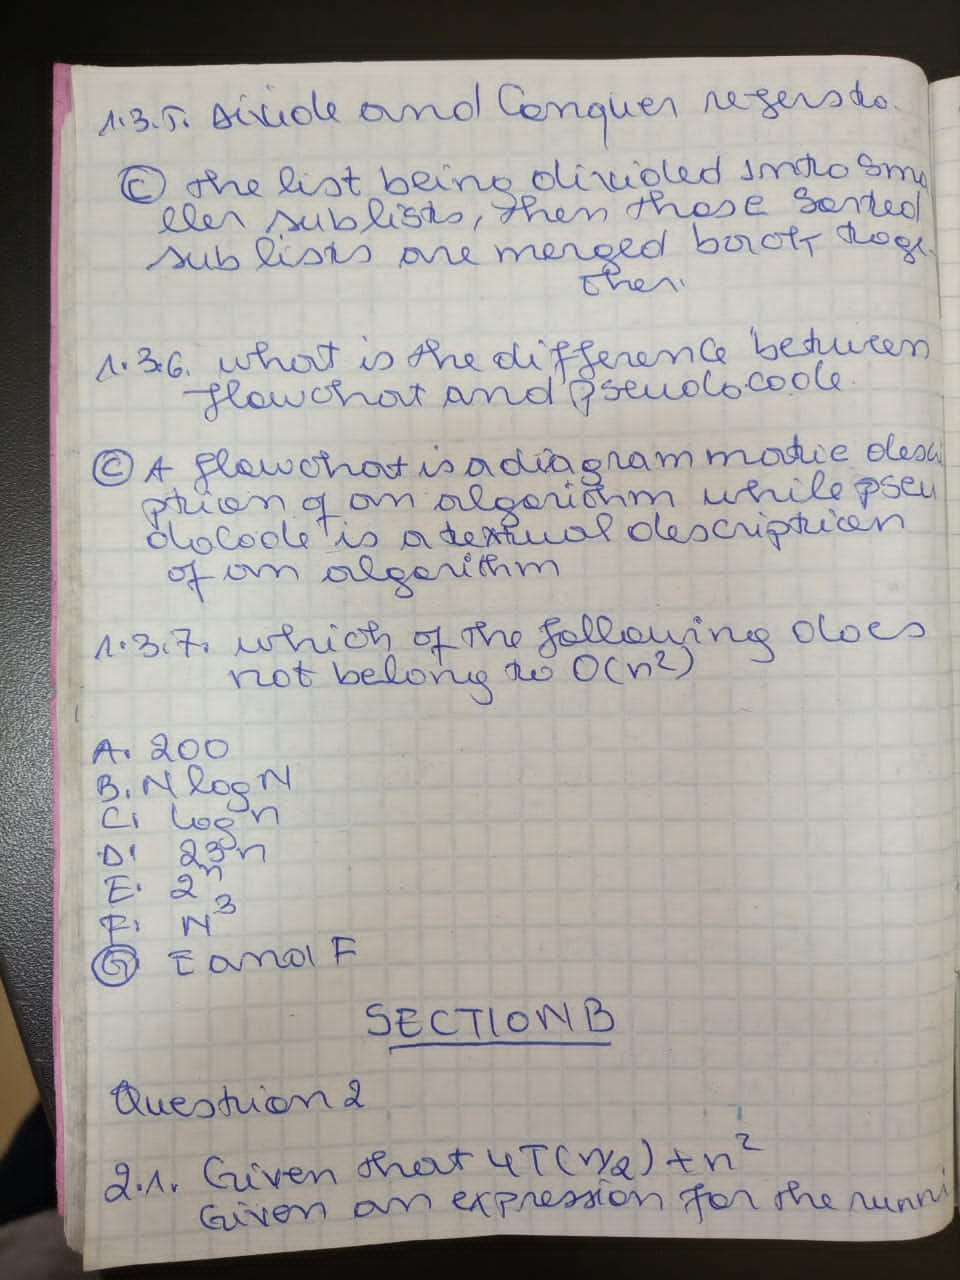 1.3.5. Divide and Conquer refers to.
Ⓒ the list being divided into sma
ller sublists, then those sorted
sublists are merged back toge
ther.
1.3.6. what is the difference between
flowchat and pseudocode.
Ⓒ A flowchat is a diagrammatic descri
ption of an algorithm while pseu
docode is a textual description
of an algorithm
1.3.7. which of the following does
not belong to O(n²)
A. 200
B. N log N
C. log n
D. 23n
E. 2ⁿ
F. N³
Ⓖ E and F
SECTION B
Question 2
2.1. Given that 4T(n/2) + n²
Given an expression for the runni